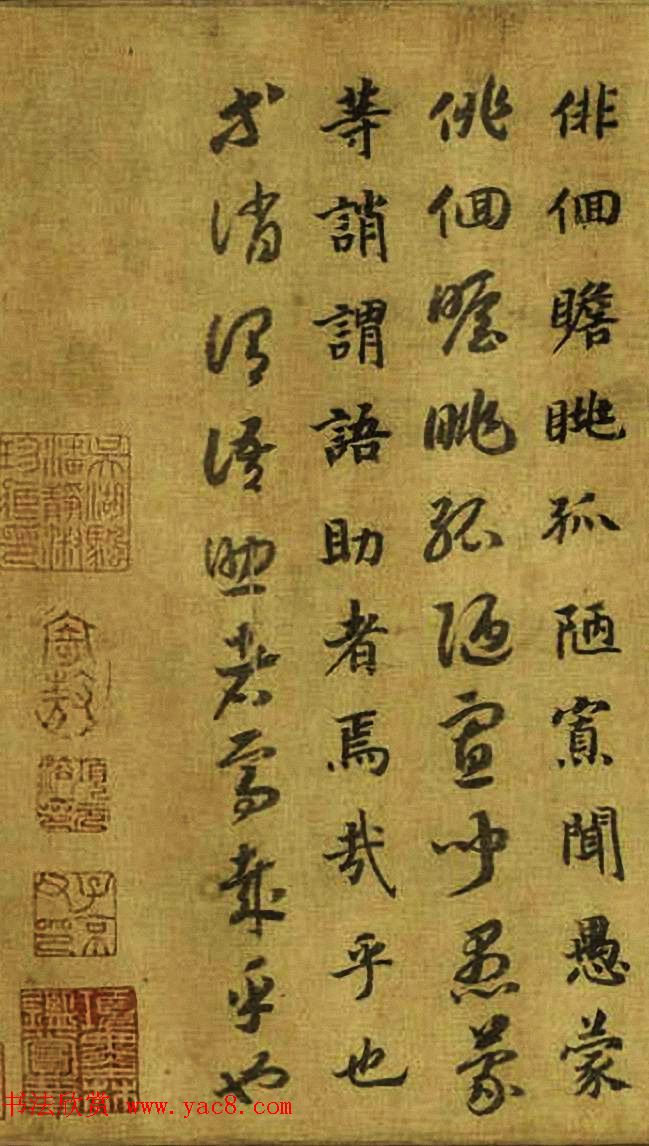 俳佪瞻眺孤陋寡聞愚蒙
俳佪瞻眺孤陋寡聞愚蒙
等誚謂語助者焉哉乎也
等誚謂語助者焉哉乎也
书法欣赏 www.yac8.com